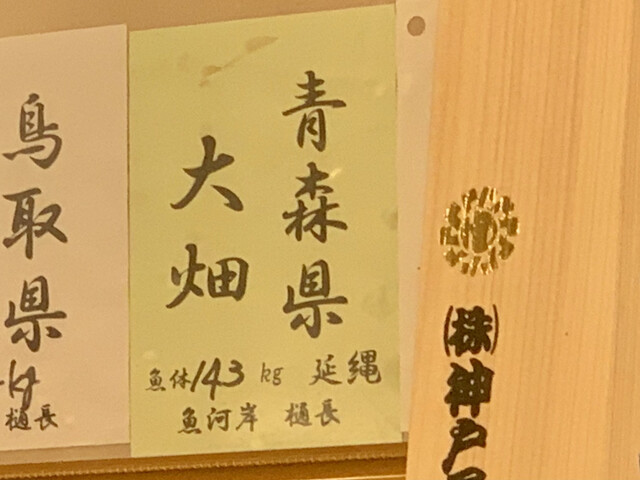 青森県
大畑
魚体143kg 延縄
魚河岸 樋長
鳥取県
kg
樋長
㈱神戸